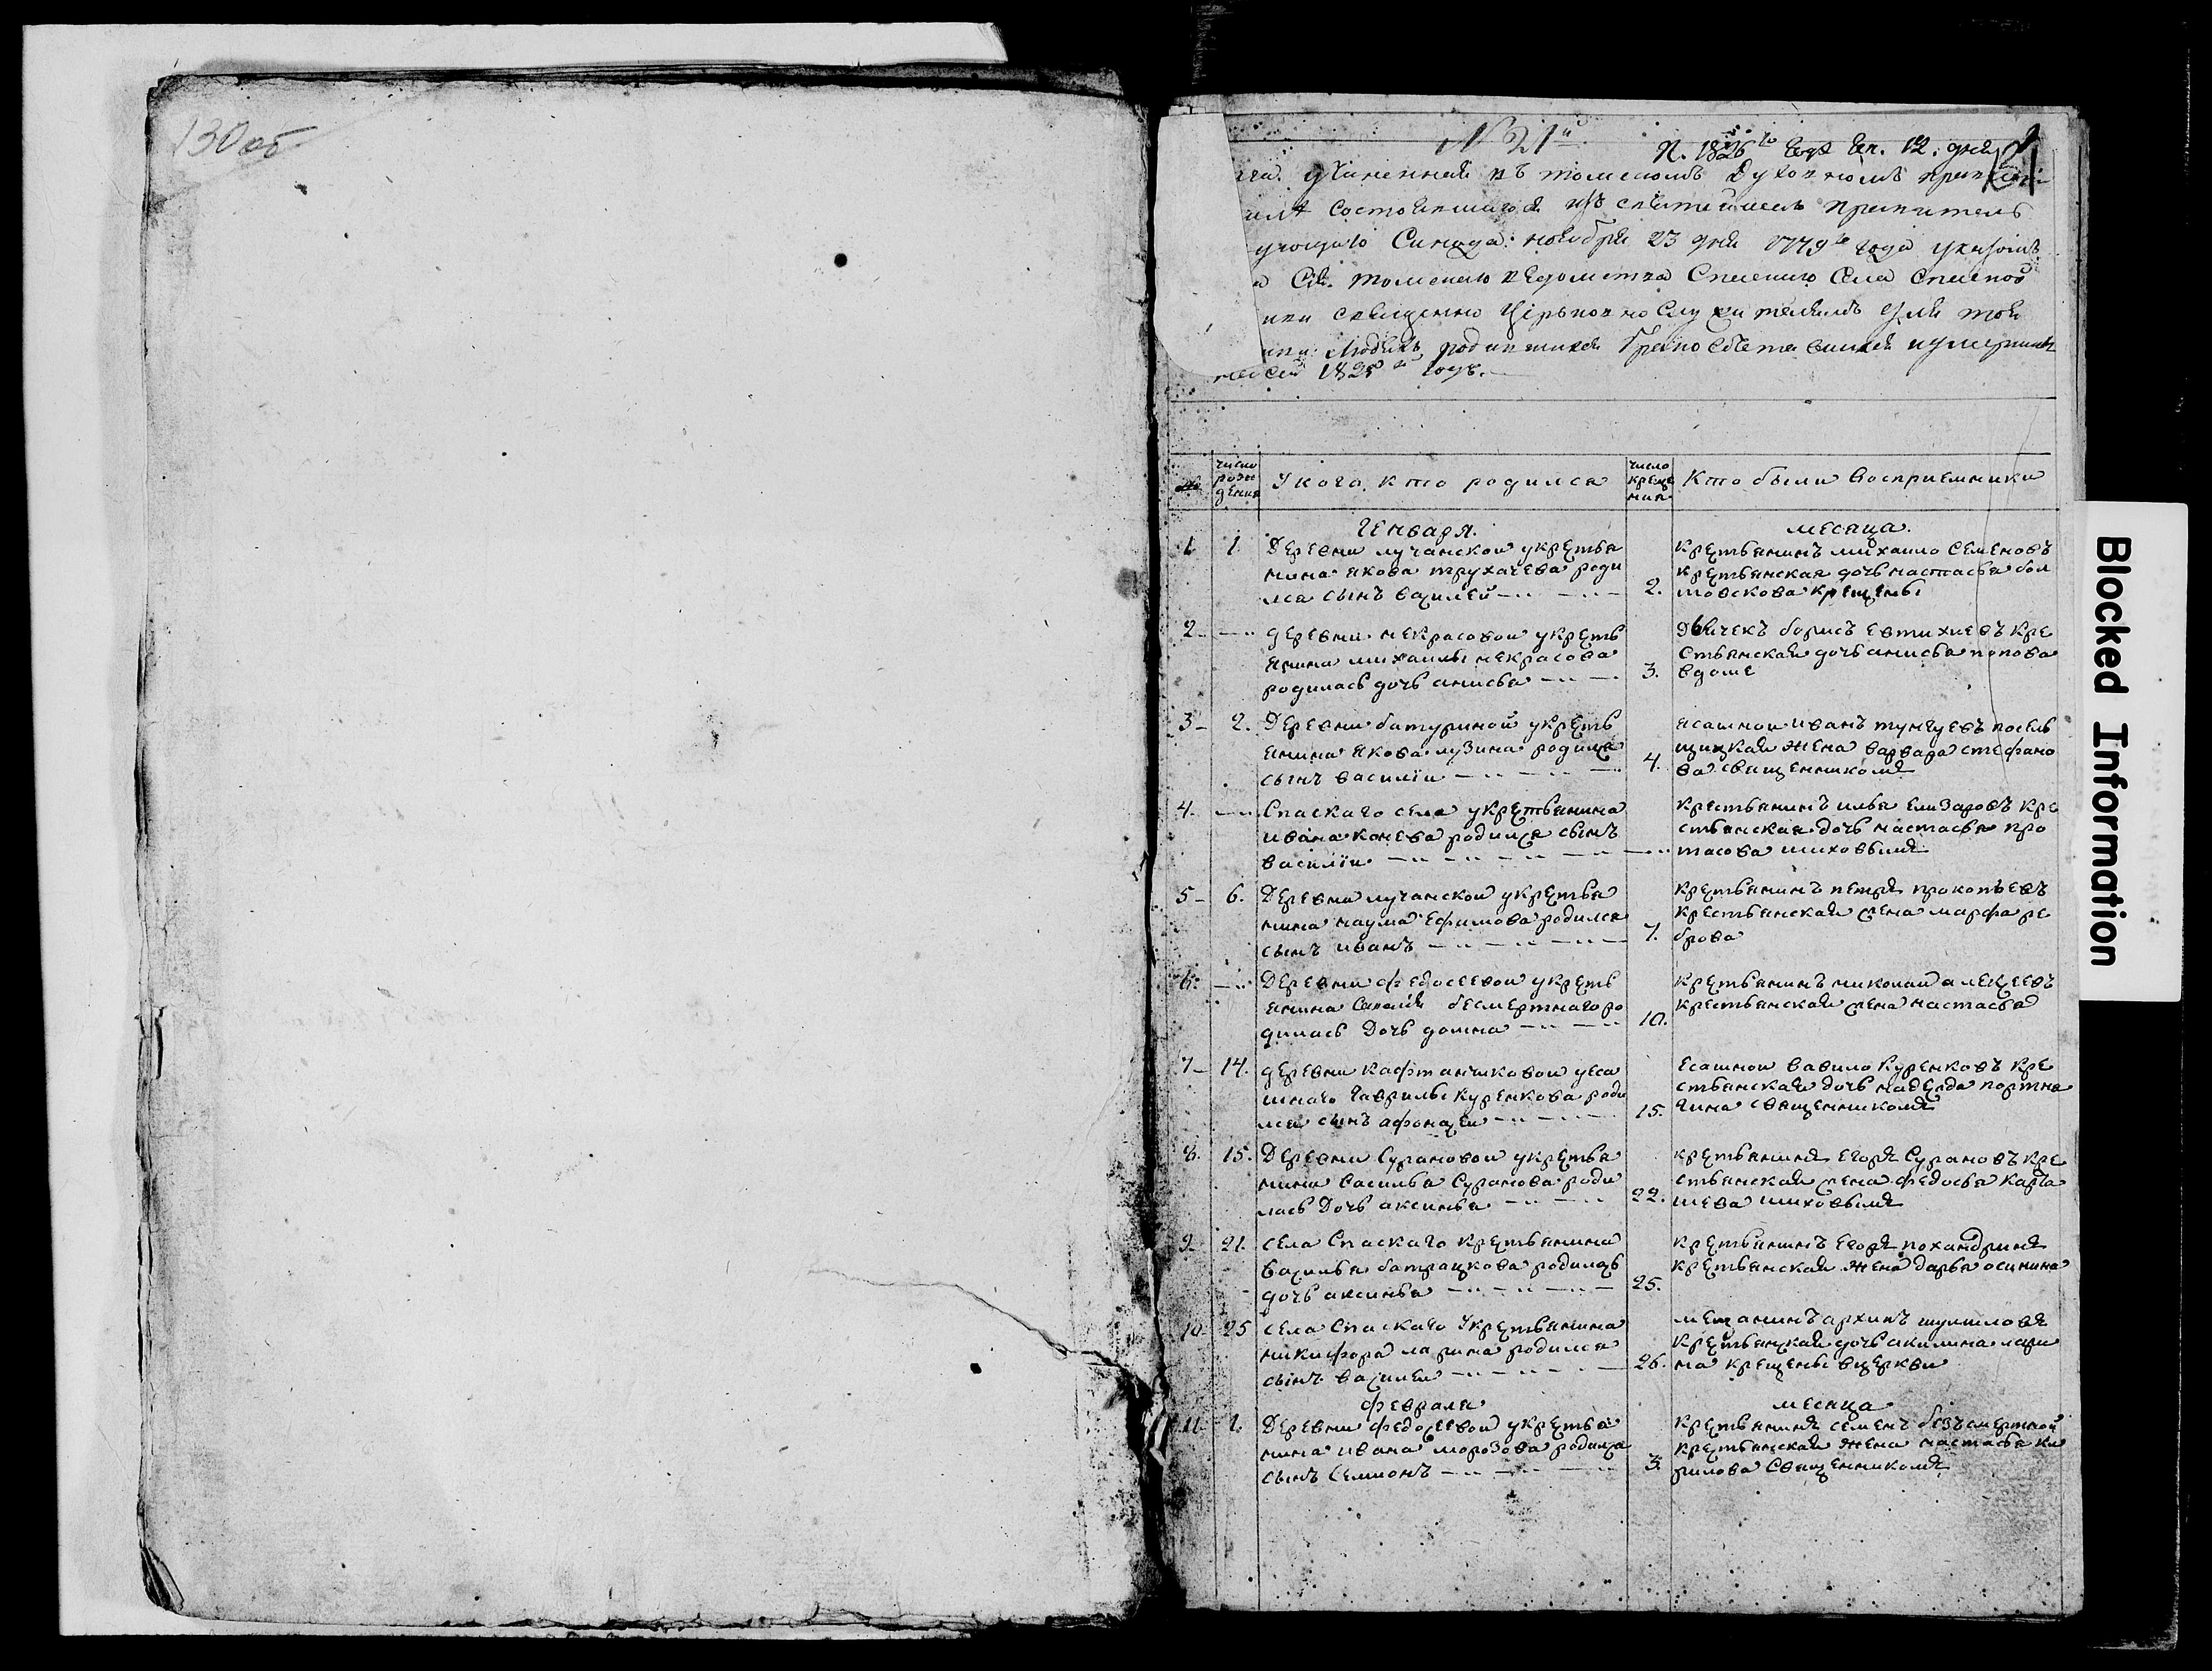 130 об
№ 21й
П. 1826го года Ген. 12. дня
учиненная въ томскомъ духовномъ правл
состоявшагося изъ святейшаго правитель
ующаго Синода: ноября 23 дня 1779го года указомъ
томскаго ведомства Спаскаго Села Спаской
священно церьковно служителямъ для той
родившихся бракосочетавшихся и умершихъ
сей 1825го годъ.
№
число рожде дения
У кого, кто родился
число креще ния
Кто были восприемники
Генваря.
месяца.
1 1 Деревни лучанской у крестья
нина якова трухачева роди
лся сынъ василей
2.
крестьянинъ михаило Семеновъ
крестьянская дочь настасья бол
товскова крещены
2 деревни некрасовой у кресть
янина михаилы некрасова
родилась дочь анисья
3.
Дьячекъ борисъ евтихиевъ кре
стьянская дочь анисья попова
в доме
3 2. Деревни батуриной у кресть
янина якова лузина родился
сынъ василiи
4.
ясашнои иванъ тунгуевъ посель
щицкая жена варвара стефано
ва священникомъ
4. Спаскаго села у крестьянина
ивана конева родился сынъ
василiи
крестьянинъ илья елизаровъ кре
стьянская дочь настасья про
тасова
5 6. Деревни лучанской у крестья
нина наума ефимова родился
сынъ иванъ
7.
крестьянинъ петръ прокопьевъ
крестьянская жена марфа ре
брова
6. Деревни федосеевой у кресть
янина бесмертнаго ро
дилась дочь домна
10.
крестьянинъ николаи алексеевъ
крестьянская жена настасья
7 14. деревни кафтанчиковой у еса
шнаго гаврилы куренкова роди
лся сынъ афонасеи
15.
Есашнои вавило куренковъ кре
стьянская дочь надежда портня
гина священникомъ
8. 15. Деревни Сурановой у крестья
нина василья Суранова роди
лась дочь аксинья
22.
крестьянинъ егоръ Сурановъ кре
стьянская жена федосья карта
шева
9 21. села Спаскаго крестьянина
василья батрацкова родилась
дочь аксинья
25.
крестьянинъ егоръ похандринъ
крестьянская жена дарья осинина
10 25 села Спаскаго У крестьянина
никифора ларина родился
сынъ василеи
26.
мещанинъ архипъ шумиловъ
крестьянская дочь акилина лари
на крещены в церкви
Февраля
месяца
11. 1. Деревни федосеевой у крестья
нина ивана морозова родился
сынъ Семионъ
3.
крестьянинъ семенъ безъсмертной
крестьянская жена настасья ки
рилова Священникомъ
Blocked Information